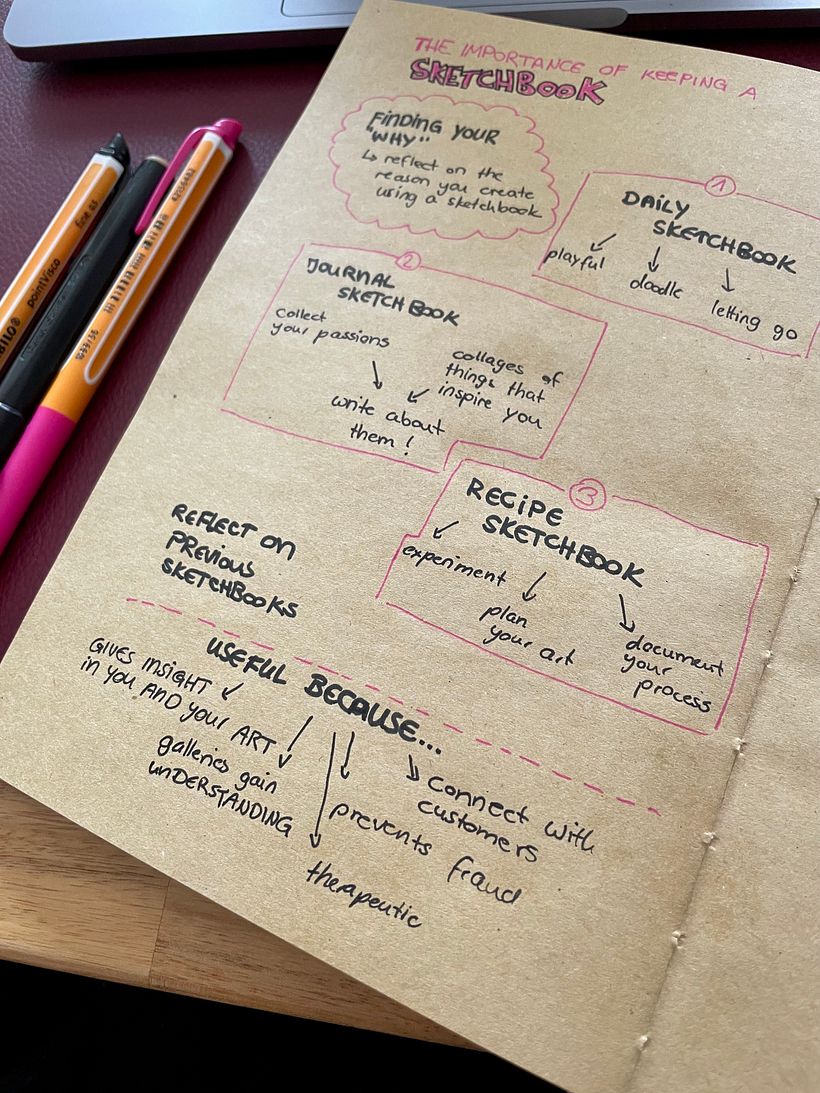 THE IMPORTANCE OF KEEPING A
SKETCHBOOK
FiNDiNG YOUR
"WHY"
↳ reflect on the
reason you create
using a sketchbook
1
DAiLY
SKETCHBOOK
playful
doodle
letting go
2
JOURNAL
SKETCHBOOK
collect
your passions
collages of
things that
inspire you
write about
them!
3
RECiPE
SKETCHBOOK
experiment
plan
your art
document
your
process
REFLECT ON
PREVIOUS
SKETCHBOOKS
USEFUL BECAUSE...
GIVES INSIGHT
in you AND your ART
galleries gain
unDERSTANDING
therapeutic
prevents fraud
connect with
customers
pointVisco
fine 0.5